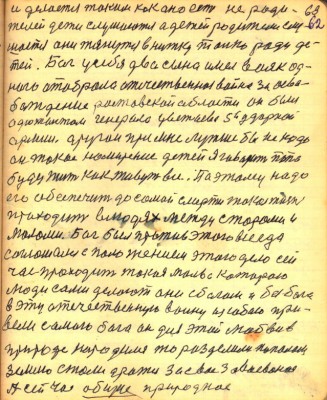 и делается таким как оно есть не роди- 63
телей дети слушаются а детей родители слу- 62
шаются они тянутся в нитку только ради де-
тей. Бог у себя два сына имел война од-
ного отобрала отечественная война за осво-
бождение ростовской области он был
адютантом генерала цветаева 5й ударной
армии. другой при мне лучше бы не надо
он такое намерение детей я говорит папа
буду жить как живут все. Поэтому надо
его обеспечить до самой смерти то как там
приходить в людях между старыми и
малыми Бог был против этого всегда
соглашался с положением этого дело сей
час проходить такая мысль которого
люди сами делают они с богом и без бога
в эту отечественную войну из собою при-
вели самого бога он для этой любви в
природе народился то разделили пополам
землю стали драться за свое завоевание
А сейчас общее природное